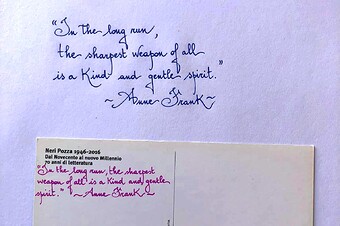 "In the long run,
the sharpest weapon of all
is a Kind and gentle spirit."
~Anne Frank~
Neri Pozza 1946-2016
Dal Novecento al nuovo Millennio
70 anni di letteratura
"In the long run, the sharpest
weapon of all is a Kind and gentle
spirit." ~Anne Frank~